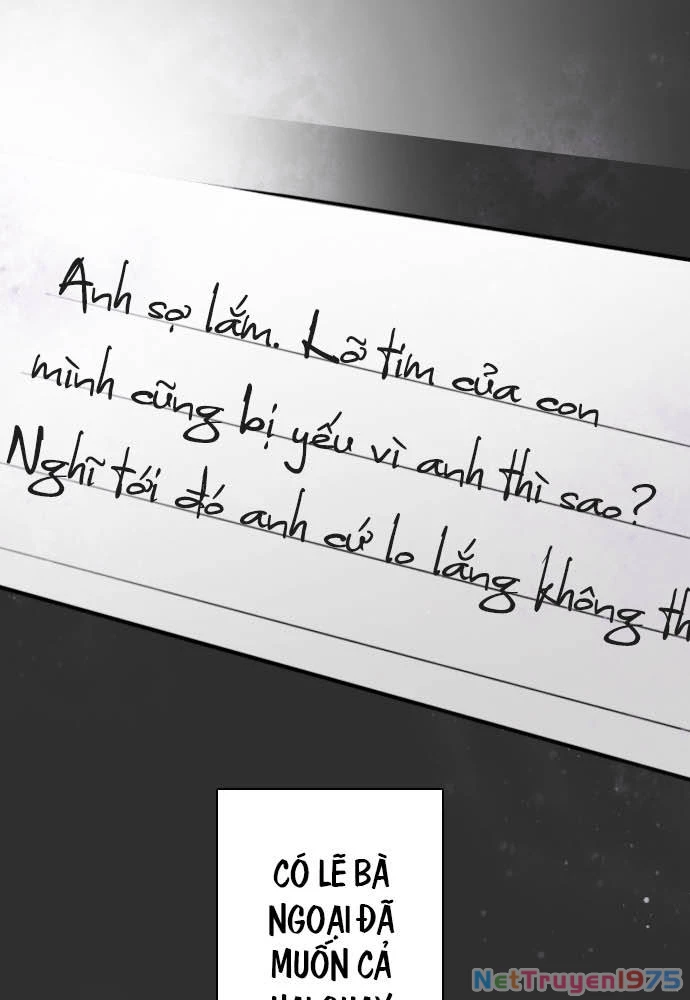 Anh sợ lắm. Lỡ tim của con
mình cũng bị yếu vì anh thì sao?
Nghĩ tới đó anh cứ lo lắng không th
CÓ LẼ BÀ
NGOẠI ĐÃ
MUỐN CẢ
HAI QUAY
NetTruyen1975